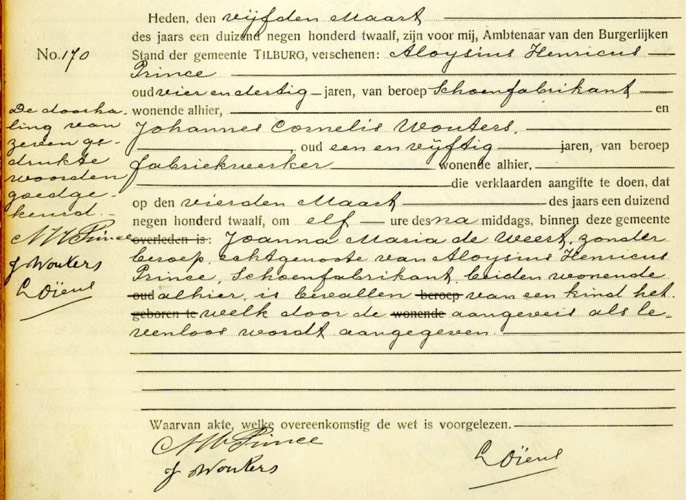 Heden, den vijfden Maart
des jaars een duizend negen honderd twaalf, zijn voor mij, Ambtenaar van den Burgerlijken
No. 170
Stand der gemeente TILBURG, verschenen: Aloysius Henricus
Prince
oud vier en dertig jaren, van beroep Schoenfabrikant
wonende alhier, en
Johannes Cornelis Wouters,
, oud een en vijftig jaren, van beroep
fabriekwerker wonende alhier,
die verklaarden aangifte te doen, dat
op den vierden Maart des jaars een duizend
negen honderd twaalf, om elf ure des na middags, binnen deze gemeente
overleden is: Joanna Maria de Weert, zonder
beroep, echtgenoote van Aloysius Henricus
Prince, Schoenfabrikant, beiden wonende
oud alhier, is bevallen beroep van een kind het
geboren te welk door de wonende aangevers als le-
venloos wordt aangegeven.
De doorha-
ling van
zeven ge-
drukte
woorden
goedge-
keurd.
Prince
J Wouters
Waarvan akte, welke overeenkomstig de wet is voorgelezen.
Prince
J Wouters